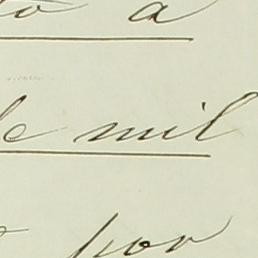 to a
de mil
por